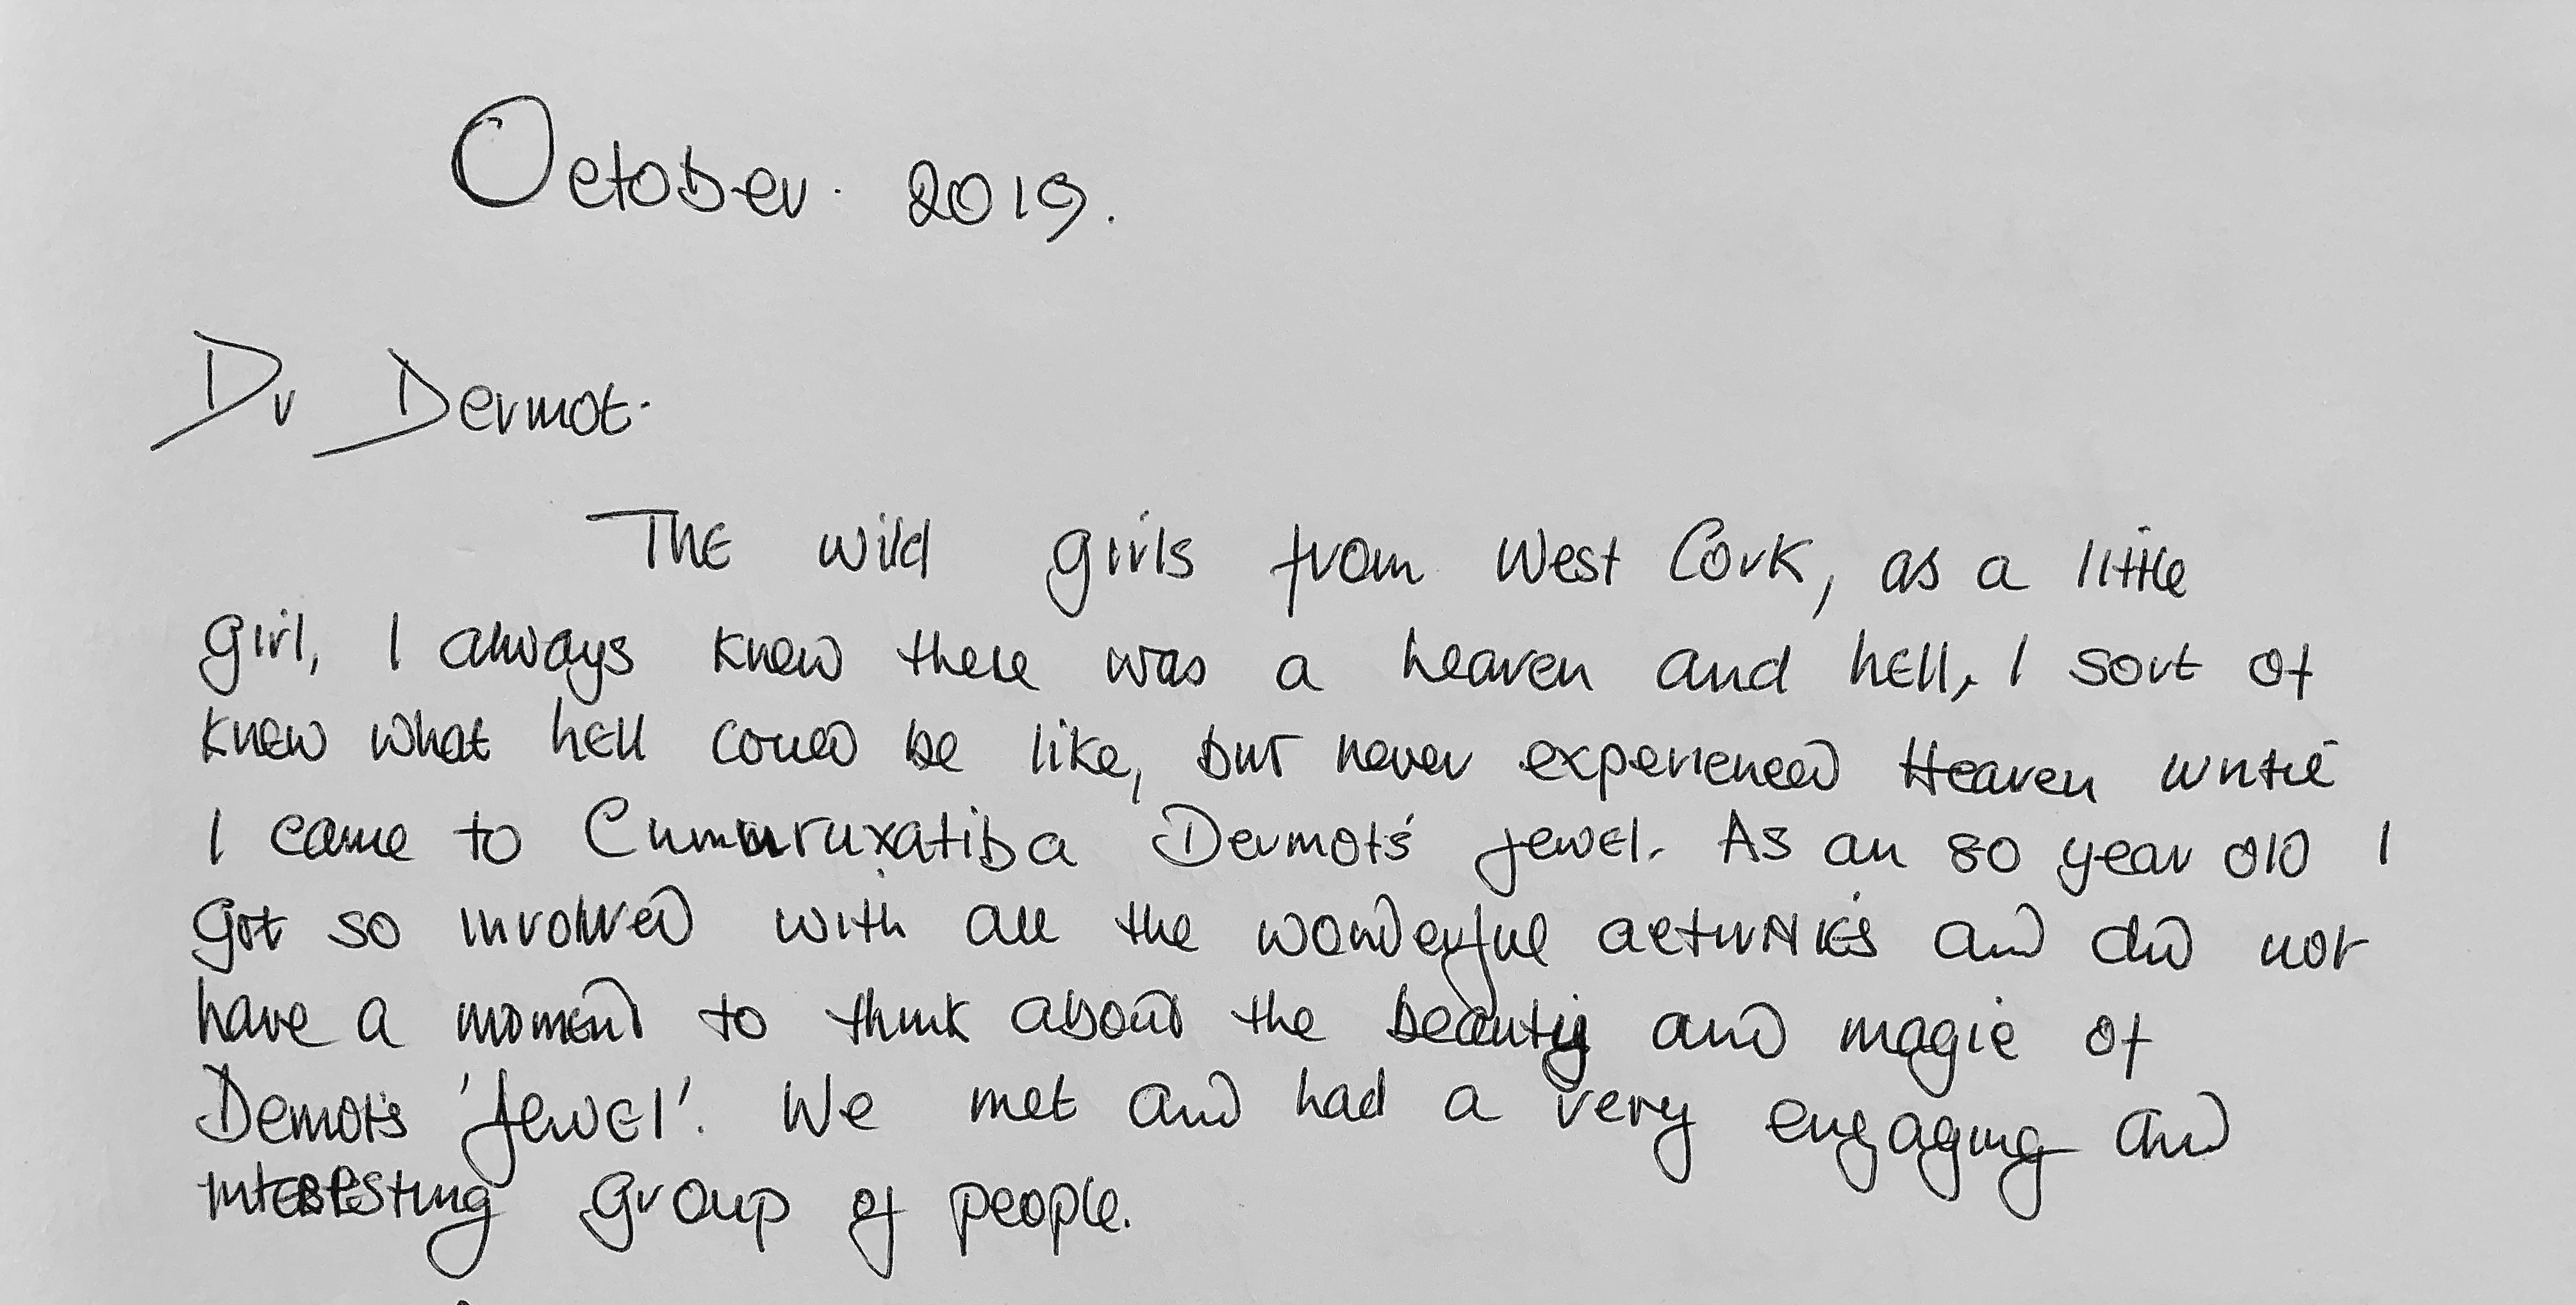 October. 2019.
Dr Dermot.
The wild girls from West Cork, as a little
girl, I always knew there was a heaven and hell, I sort of
knew what hell could be like, but never experienced Heaven until
I came to Cumuruxatiba Dermot's jewel. As an 80 year old I
got so involved with all the wonderful activities and did not
have a moment to think about the beauty and magic of
Demot's 'Jewel'. We met and had a very engaging and
interesting group of people.